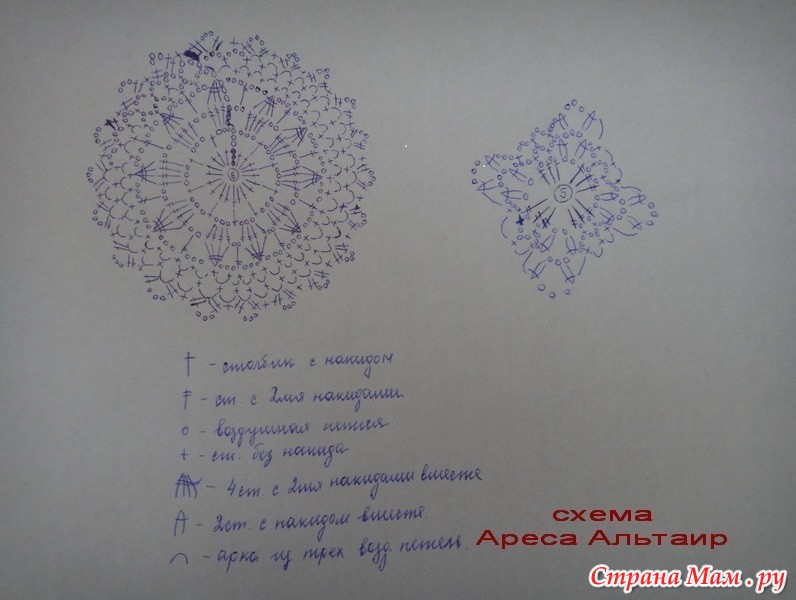 6
5
† - столбик с накидом
- ст. с 2мя накидами
о - воздушная петля
+ - ст. без накида
- 4 ст. с 2мя накидами вместе
- 2 ст. с накидом вместе.
⌒ - арка из трех возд. петель.
схема
Ареса Альтаир
Страна Мам.ру